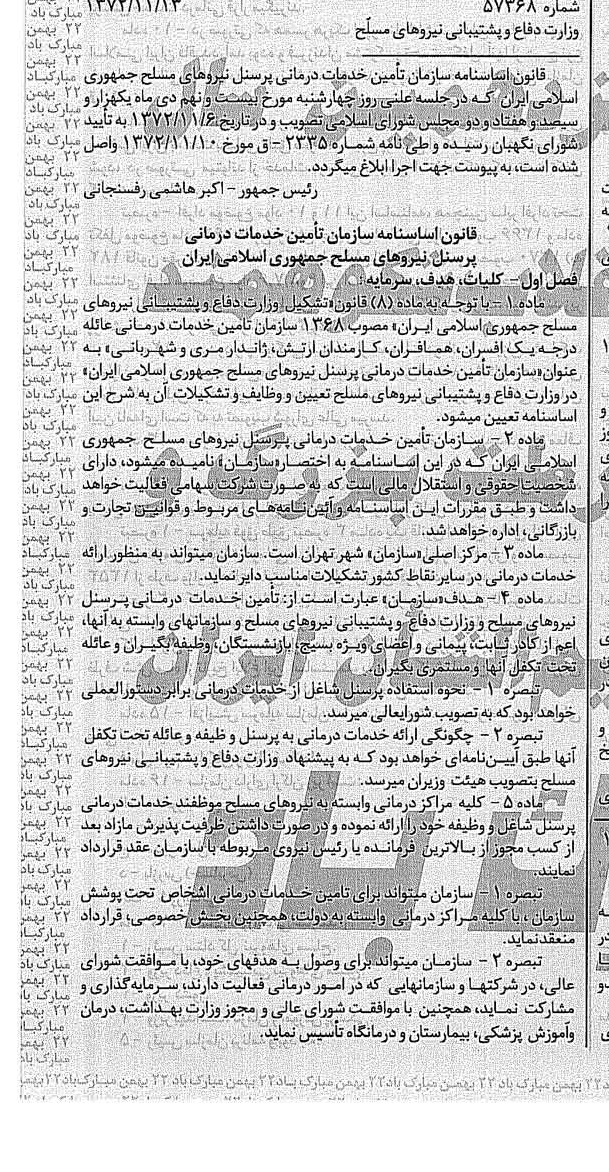 شماره ۵۷۳۶۸ ۱۳۷۲/۱۱/۱۳
وزارت دفاع و پشتیبانی نیروهای مسلّح
قانون اساسنامه سازمان تأمین خدمات درمانی پرسنل نیروهای مسلح جمهوری
اسلامی ایران که در جلسه علنی روز چهارشنبه مورخ بیست و نهم دی ماه یکهزار و
سیصد و هفتاد و دو مجلس شورای اسلامی تصویب و در تاریخ ۱۳۷۲/۱۱/۶ به تأیید
شورای نگهبان رسیده و طی نامه شماره ۲۳۳۵ - ق مورخ ۱۳۷۲/۱۱/۱۰ واصل
شده است، به پیوست جهت اجرا ابلاغ میگردد.
رئیس جمهور - اکبر هاشمی رفسنجانی
قانون اساسنامه سازمان تأمین خدمات درمانی
پرسنل نیروهای مسلح جمهوری اسلامی ایران
فصل اول - کلیات، هدف، سرمایه:
ماده ۱ - با توجه به ماده (۸) قانون «تشکیل وزارت دفاع و پشتیبانی نیروهای
مسلح جمهوری اسلامی ایران» مصوب ۱۳۶۸ سازمان تامین خدمات درمانی عائله
درجه یک افسران، همافران، کارمندان ارتش، ژاندارمری و شهربانی» به
عنوان «سازمان تأمین خدمات درمانی پرسنل نیروهای مسلح جمهوری اسلامی ایران»
در وزارت دفاع و پشتیبانی نیروهای مسلح تعیین و وظایف و تشکیلات آن به شرح این
اساسنامه تعیین میشود.
ماده ۲ - سازمان تأمین خدمات درمانی پرسنل نیروهای مسلح جمهوری
اسلامی ایران که در این اساسنامه به اختصار «سازمان» نامیده میشود، دارای
شخصیت حقوقی و استقلال مالی است که به صورت شرکت سهامی فعالیت خواهد
داشت و طبق مقررات این اساسنامه و آئین‌نامه‌های مربوط و قوانین تجارت و
بازرگانی، اداره خواهد شد.
ماده ۳ - مرکز اصلی «سازمان» شهر تهران است. سازمان میتواند به منظور ارائه
خدمات درمانی در سایر نقاط کشور تشکیلات مناسب دایر نماید.
ماده ۴ - هدف «سازمان» عبارت است از: تأمین خدمات درمانی پرسنل
نیروهای مسلح و وزارت دفاع و پشتیبانی نیروهای مسلح و سازمانهای وابسته به آنها،
اعم از کادر ثابت، پیمانی و اعضای ویژه بسیج، بازنشستگان، وظیفه بگیران و عائله
تحت تکفل آنها و مستمری بگیران.
تبصره ۱ - نحوه استفاده پرسنل شاغل از خدمات درمانی برابر دستورالعملی
خواهد بود که به تصویب شورایعالی میرسد.
تبصره ۲ - چگونگی ارائه خدمات درمانی به پرسنل و ظیفه و عائله تحت تکفل
آنها طبق آیین‌نامه‌ای خواهد بود که به پیشنهاد وزارت دفاع و پشتیبانی نیروهای
مسلح بتصویب هیئت وزیران میرسد.
ماده ۵ - کلیه مراکز درمانی وابسته به نیروهای مسلح موظفند خدمات درمانی
پرسنل شاغل و وظیفه خود را ارائه نموده و در صورت داشتن ظرفیت پذیرش مازاد بعد
از کسب مجوز از بالاترین فرمانده یا رئیس نیروی مربوطه با سازمان عقد قرارداد
نمایند.
تبصره ۱ - سازمان میتواند برای تامین خدمات درمانی اشخاص تحت پوشش
سازمان، با کلیه مراکز درمانی وابسته به دولت، همچنین بخش خصوصی، قرارداد
منعقد نماید.
تبصره ۲ - سازمان میتواند برای وصول به هدفهای خود، با موافقت شورای
عالی، در شرکتها و سازمانهایی که در امور درمانی فعالیت دارند، سرمایه‌گذاری و
مشارکت نماید، همچنین با موافقت شورای عالی و مجوز وزارت بهداشت، درمان
وآموزش پزشکی، بیمارستان و درمانگاه تأسیس نماید.
۲۲ بهمن مبارک باد ۲۲ بهمن مبارک باد ۲۲ بهمن مبارک باد ۲۲ بهمن مبارک باد ۲۲ بهمن مبارک باد ۲۲ بهمن